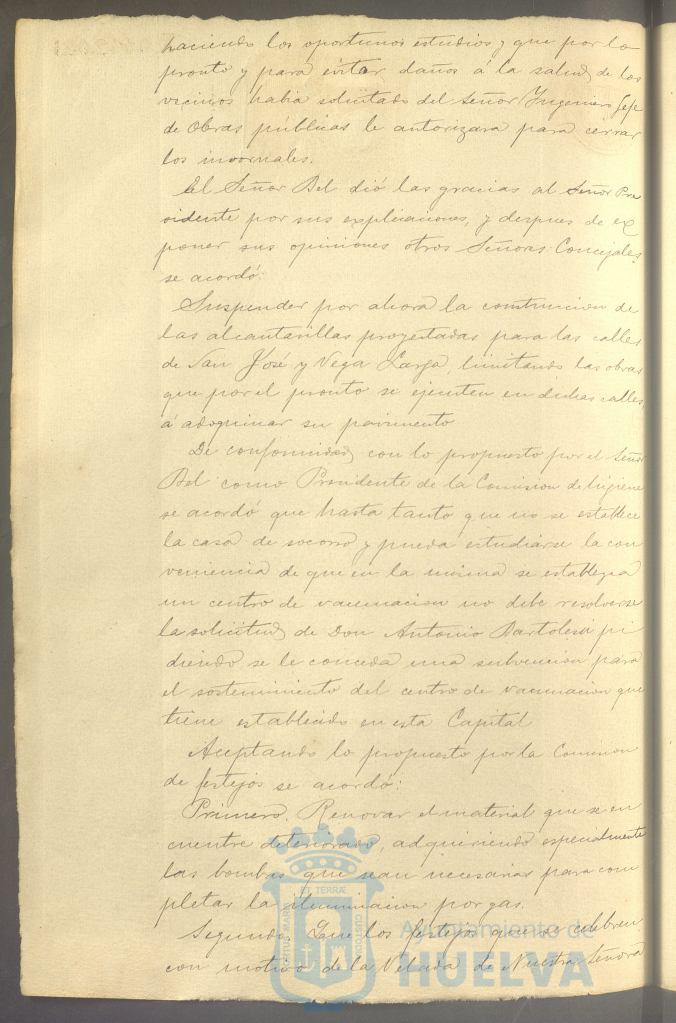 haciendo los oportunos estudios y que por lo
pronto y para evitar daños á la salud de los
vecinos habia solicitado del Señor Ingeniero Jefe
de Obras públicas le autorizara para cerrar
los imvornales.
El Señor Bel dió las gracias al Señor Pre
sidente por sus explicaciones, y despues de ex
poner sus opiniones otros Señores Concejales,
se acordó:
Suspender por ahora la construccion de
las alcantarillas proyectadas para las calles
de San José y Vega Larga, limitando las obras
que por el pronto se ejecuten en dichas calles
á adoquinar su pavimento
De conformidad con lo propuesto por el Señor
Bel como Presidente de la Comision de higiene
se acordó que hasta tanto que no se establece
la casa de socorro y pueda estudiarse la con
veniencia de que en la misma se establezca
un centro de vacunacion no debe resolverse
la solicitud de Don Antonio Bartolesi pi
diendo se le conceda una subvencion para
el sostenimiento del centro de vacunacion que
tiene establecido en esta Capital
Aceptando lo propuesto por la Comision
de festejos se acordó:
Primero. Renovar el material que se en
cuentre deteriorado, adquiriendo especialmente
las bombas que sean necesarias para com
pletar la iluminacion por gas.
Segundo. Que los festejos que se celebren
con motivo de la Velada de Nuestra Señora
ET TERRÆ
PORTUS MARIS
CUSTODIA
Ayuntamiento de
HUELVA